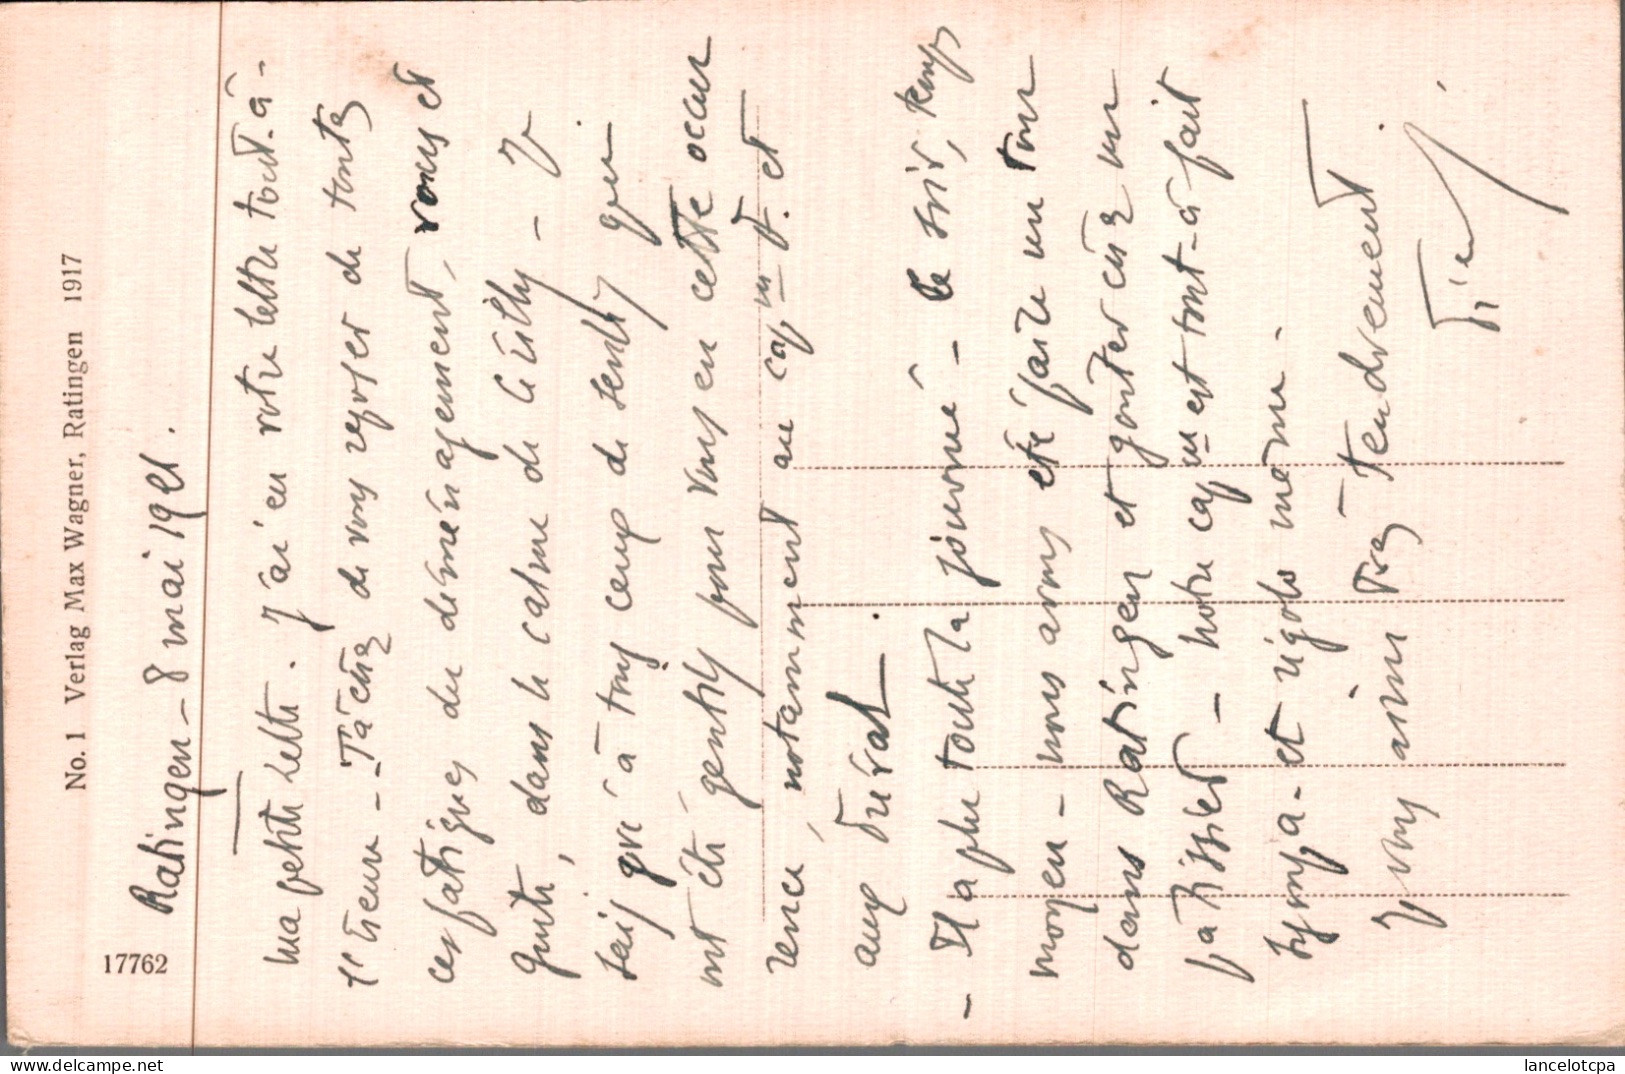 No. 1 Verlag Max Wagner, Ratingen 1917
17762
Ratingen - 8 mai 1921.
ma petite Lette. J'ai eu votre lettre tout-à-
l'heure - - Tâchez de vous reposer de toutes
ces fatigues du déménagement, vous et
, dans le calme de - Je
sais gré à tous ceux de qui
ont été gentils pour vous en cette occur
rence, notamment au cap. et
aux Duval.
- Il a plu toute la journée - le soir, temps
moyen - nous avons été faire un tour
dans Ratingen et goûter chez un
pâtissier - notre cap. est tout-à-fait
sympa - et rigolo même.
Je vous aime très tendrement.